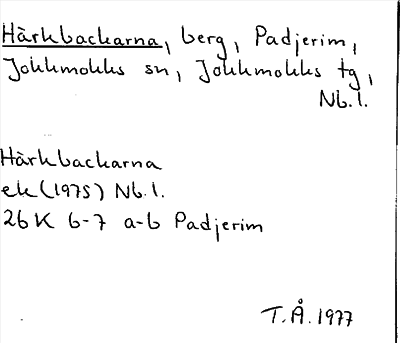 Härkbackarna, berg, Padjerim,
Jokkmokks sn, Jokkmokks tg,
Nb.l.
Härkbackarna
ek (1975) Nb.l.
26K 6-7 a-b Padjerim
T.Å. 1977